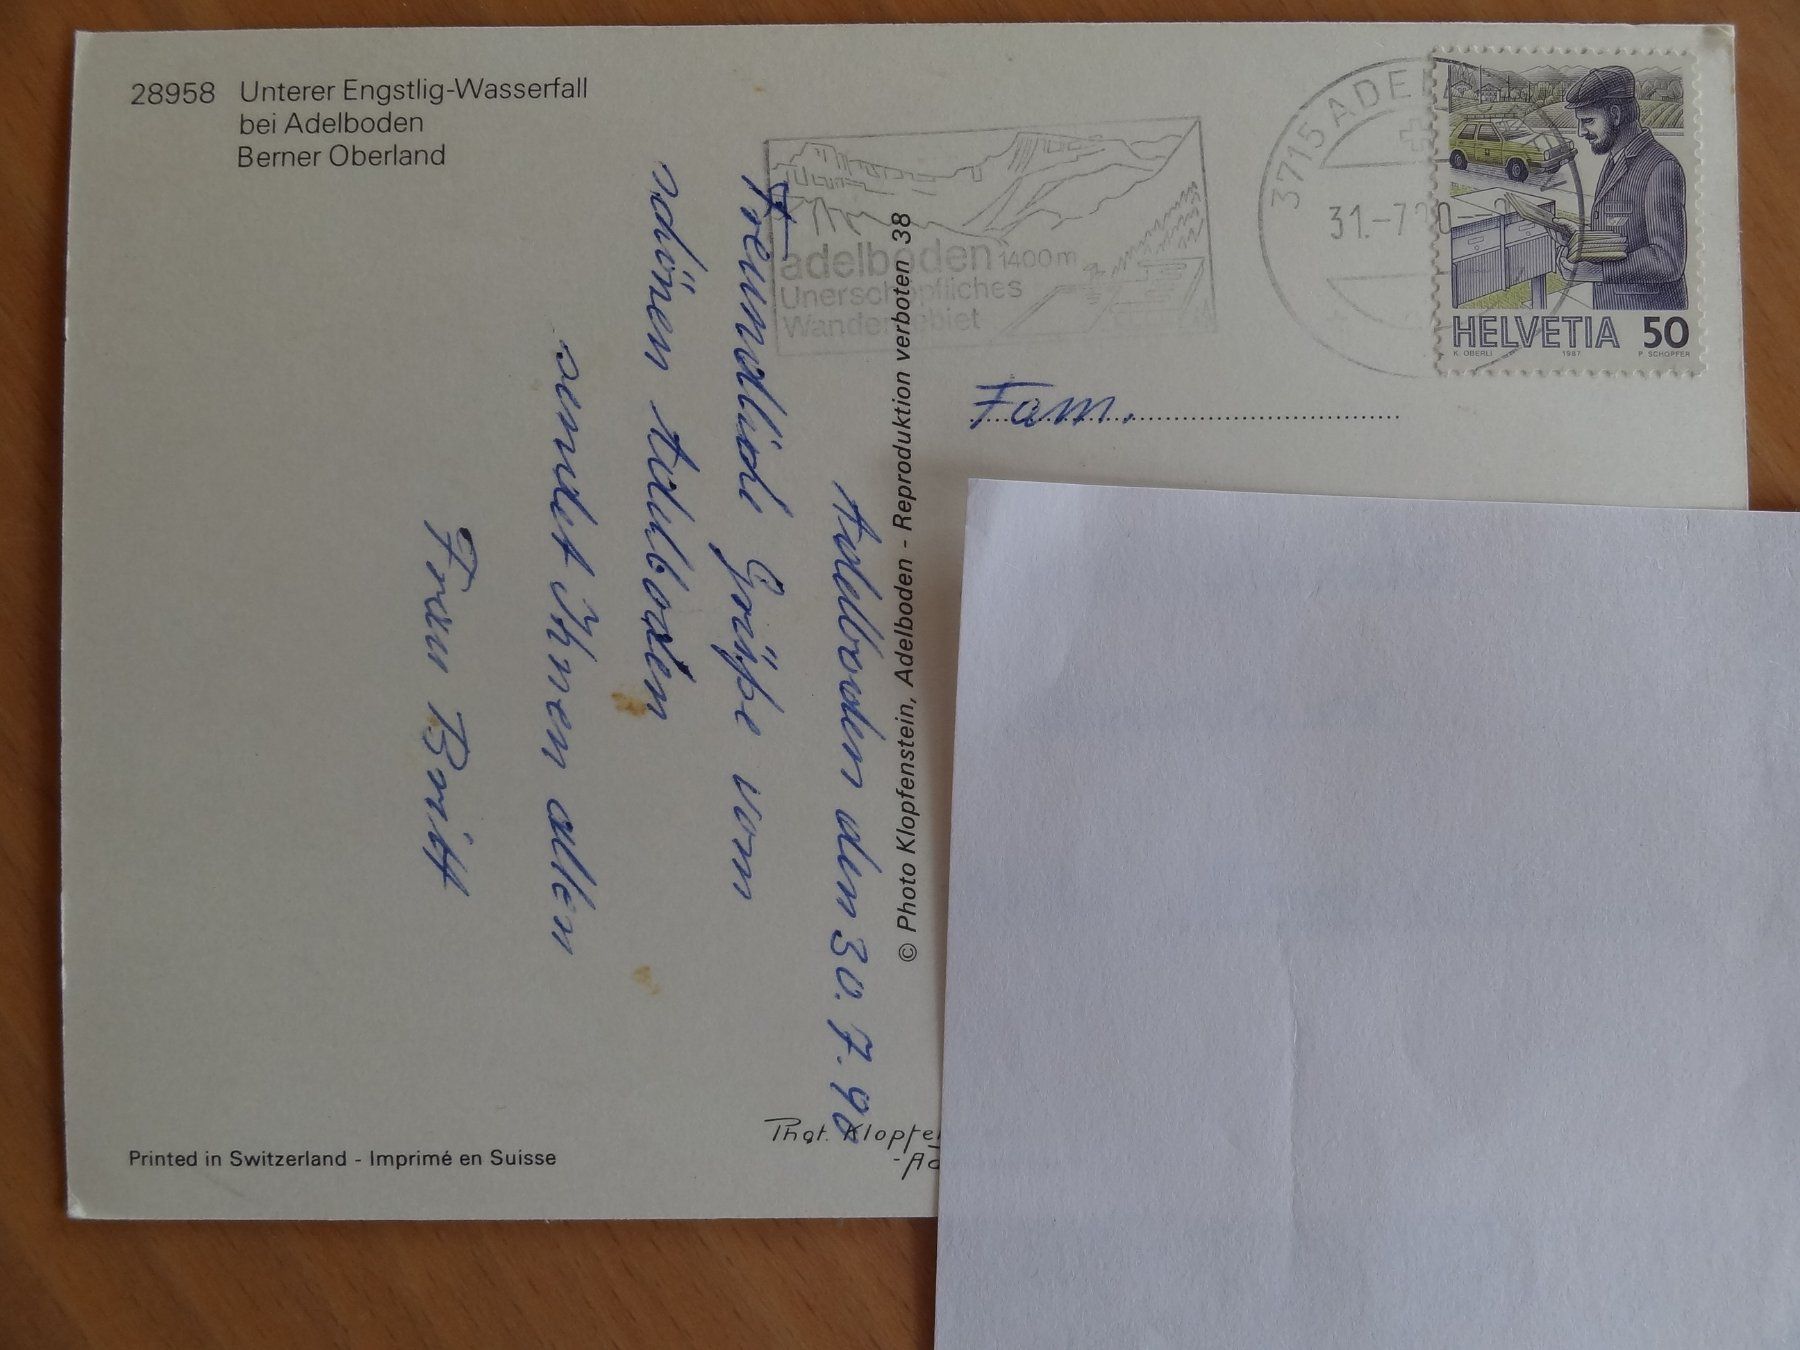 28958 Unterer Engstlig-Wasserfall
bei Adelboden
Berner Oberland
adelboden 1400 m
Unerschöpfliches
Wandergebiet
3715 ADEL
31.-7.90
HELVETIA 50
K. OBERLI 1987 P. SCHOPFER
Fam.
Adelboden den 30.7.90
Freundliche Grüße vom
schönen Adelboden
sendet Ihnen allen
Frau Britt
© Photo Klopfenstein, Adelboden - Reproduktion verboten 38
Phot. Klopfe
-Ad
Printed in Switzerland - Imprimé en Suisse